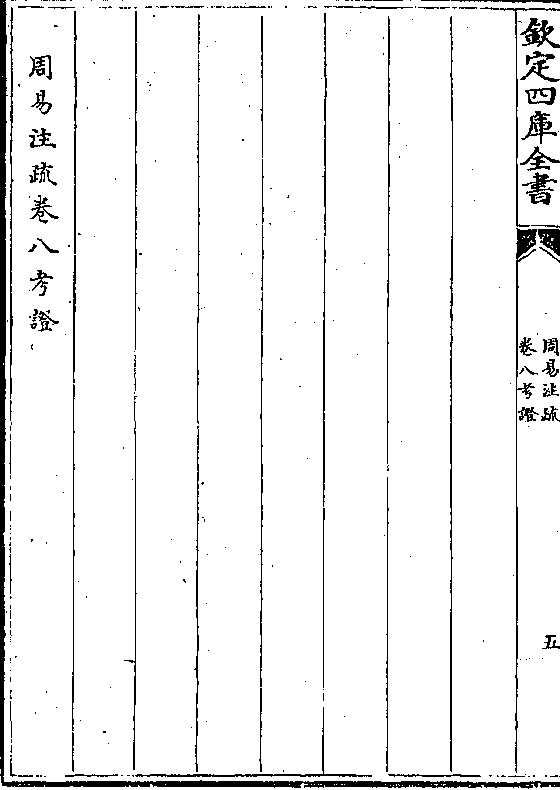 欽定四庫全書
周易注疏
卷八考證
五
周易注疏卷八考證